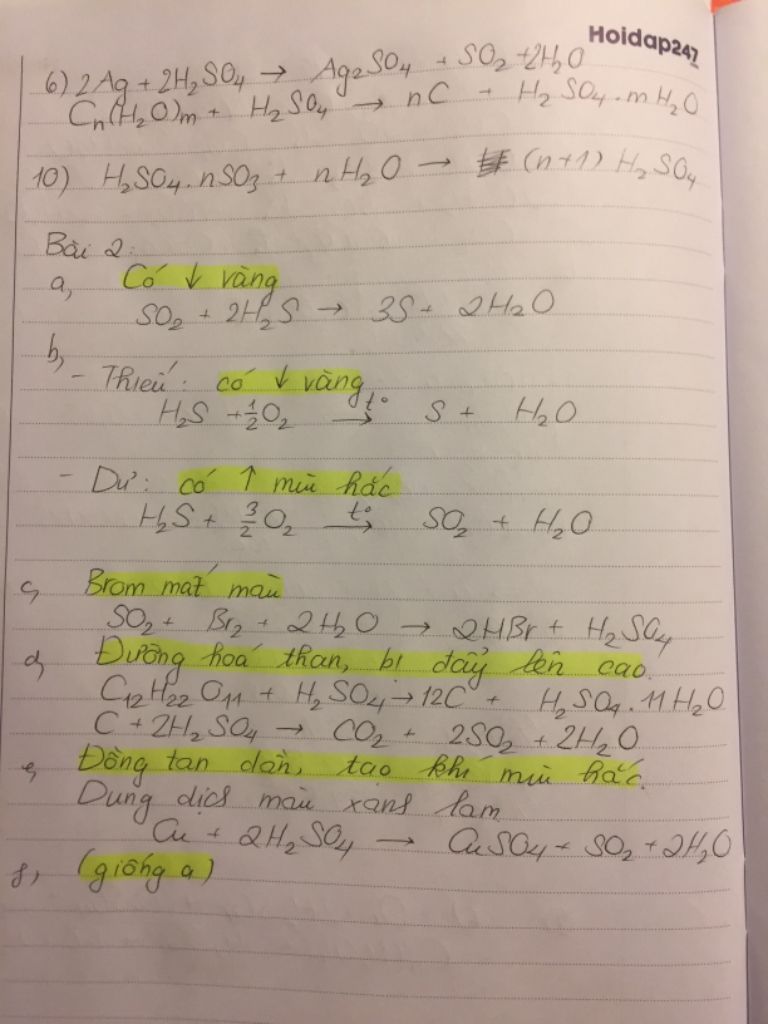 Hoidap247
6) 2Ag + 2H₂SO₄ → Ag₂SO₄ + SO₂ + 2H₂O
Cn(H₂O)m + H₂SO₄ → nC + H₂SO₄.mH₂O
10) H₂SO₄.nSO₃ + nH₂O → (n+1) H₂SO₄
Bài 2:
a, Có ↓ vàng
SO₂ + 2H₂S → 3S + 2H₂O
b,
- Thiếu: có ↓ vàng
H₂S + 1/2 O₂ →t° S + H₂O
- Dư: có ↑ mùi hắc
H₂S + 3/2 O₂ →t° SO₂ + H₂O
c, Brom mất màu
SO₂ + Br₂ + 2H₂O → 2HBr + H₂SO₄
d, Đường hoá than, bị đẩy lên cao.
C₁₂H₂₂O₁₁ + H₂SO₄ → 12C + H₂SO₄.11H₂O
C + 2H₂SO₄ → CO₂ + 2SO₂ + 2H₂O
e, Đồng tan dần, tạo khí mùi hắc.
Dung dịch màu xanh lam
Cu + 2H₂SO₄ → CuSO₄ + SO₂ + 2H₂O
f, (giống a)